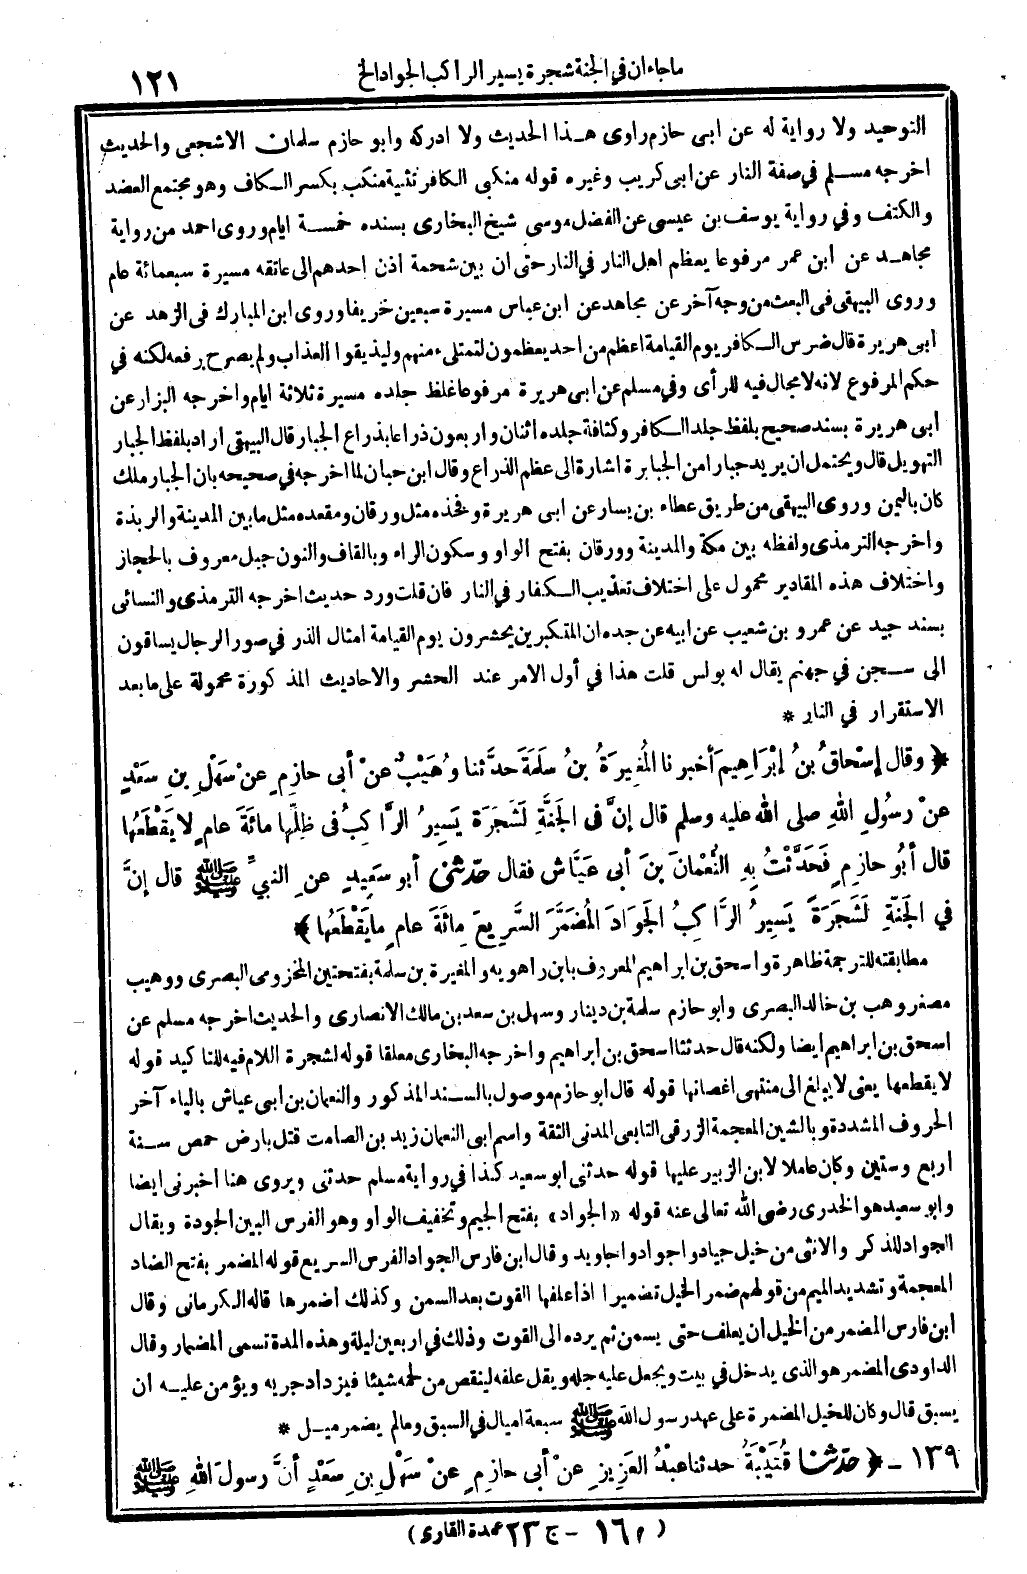 ماجاء ان في الجنة شجرة يسير الراكب الجواد الخ
١٢١
التوحيد ولا رواية له عن ابى حازم راوى هذا الحديث ولا ادركه وابو حازم سلمان الاشجعى والحديث
اخرجه مسلم في صفة النار عن ابى كريب وغيره قوله منكبى الكافر تثنية منكب بكسر الكاف وهو مجتمع العضد
والكتف وفي رواية يوسف بن عيسى عن الفضل موسى شيخ البخارى بسنده خمسة ايام وروى احمد من رواية
مجاهد عن ابن عمر مرفوعا يعظم اهل النار في النار حتى ان بين شحمة أذن احدهم الى عاتقه مسيرة سبعمائة عام
وروى البيهقى فى البعث من وجه آخر عن مجاهد عن ابن عباس مسيرة سبعين خريفا وروى ابن المبارك فى الزهد عن
ابى هريرة قال ضرس الكافر يوم القيامة اعظم من احد يعظمون لتمتلىء منهم وليذيقوا العذاب ولم يصرح برفعه لكنه في
حكم المرفوع لانه لا مجال فيه للرأى وفي مسلم عن ابى هريرة مرفوعا غلظ جلده مسيرة ثلاثة ايام واخرجه البزار عن
ابى هريرة بسند صحيح بلفظ جلد الكافر وكثافة جلده اثنان واربعون ذراعا بذراع الجبار قال البيهقى اراد بلفظ الجبار
التهويل قال ويحتمل ان يريد جبارا من الجبابرة اشارة الى عظم الذراع وقال ابن حبان لما اخرجه في صحيحه بان الجبار ملك
كان باليمن وروى البيهقى من طريق عطاء بن يسار عن ابى هريرة وفخذه مثل ورقان ومقعده مثل ما بين المدينة والربذة
واخرجه الترمذى ولفظه بين مكة والمدينة وورقان بفتح الواو وسكون الراء وبالقاف والنون جبل معروف بالحجاز
واختلاف هذه المقادير محمول على اختلاف تعذيب الكفار في النار فان قلت ورد حديث اخرجه الترمذى والنسائى
بسند جيد عن عمرو بن شعيب عن ابيه عن جده ان المتكبرين يحشرون يوم القيامة امثال الذر في صور الرجال يساقون
الى سجن في جهنم يقال له بولس قلت هذا في أول الامر عند الحشر والاحاديث المذكورة محمولة على ما بعد
الاستقرار في النار *
﴿ وقال إسْحاقُ بنُ إبْرَاهِيمَ أخبرنا المُغِيرَةُ بنُ سَلَمَةَ حدَّثنا وُهَيْبٌ عنْ أبى حازِمٍ عنْ سَهْلِ بنِ سَعْدٍ
عنْ رسُولِ اللهِ صلى الله عليه وسلم قال إنَّ فى الجَنَّةِ لَشَجَرَةً يَسِيرُ الرَّاكِبُ فى ظِلِّها مائَةَ عامٍ لا يَقْطَعُها
قال أبُو حازِمٍ فَحَدَّثْتُ بِهِ النُّعْمانَ بنَ أبى عَيَّاشٍ فقال حدّثنى أبو سَعِيدٍ عنِ النبيِّ ﷺ قال إنَّ
في الجَنَّةِ لَشَجَرَةً يَسِيرُ الرَّاكِبُ الجَوَادَ المُضَمَّرَ السَّرِيعَ مِائَةَ عامٍ ما يَقْطَعُها ﴾
مطابقته للترجمة ظاهرة واسحق بن ابراهيم المعروف بابن راهويه والمغيرة بن سلمة بفتحتين المخزومى البصرى ووهيب
مصغر وهب بن خالد البصرى وابو حازم سلمة بن دينار وسهل بن سعد بن مالك الانصارى والحديث اخرجه مسلم عن
اسحق بن ابراهيم ايضا ولكنه قال حدثنا اسحق بن ابراهيم واخرجه البخارى معلقا قوله لشجرة اللام فيه للتاكيد قوله
لا يقطعها يعنى لا يبلغ الى منتهى اغصانها قوله قال ابو حازم موصول بالسند المذكور والنعمان بن ابى عياش بالياء آخر
الحروف المشددة وبالشين المعجمة الزرقى التابعى المدنى الثقة واسم ابى النعمان زيد بن الصامت قتل بارض حمص سنة
اربع وستين وكان عاملا لابن الزبير عليها قوله حدثنى ابو سعيد كذا في رواية مسلم حدثنى ويروى هنا اخبرنى ايضا
وابو سعيد هو الخدرى رضى الله تعالى عنه قوله «الجواد» بفتح الجيم وتخفيف الواو وهو الفرس البين الجودة ويقال
الجواد للذكر والانثى من خيل جياد واجواد واجاويد وقال ابن فارس الجواد الفرس السريع قوله المضمر بفتح الضاد
المعجمة وتشديد الميم من قولهم ضمر الخيل تضميرا اذا علفها القوت بعد السمن وكذلك أضمرها قاله الكرمانى وقال
ابن فارس المضمر من الخيل أن يعلف حتى يسمن ثم يرده الى القوت وذلك في اربعين ليلة وهذه المدة تسمى المضمار وقال
الداودى المضمر هو الذى يدخل في بيت ويجعل عليه جله ويقل علفه لينقص من لحمه شيئا فيزداد جريه ويؤمن عليه ان
يسبق قال وكان للخيل المضمرة على عهد رسول الله ﷺ سبعة اميال في السبق وما لم يضمر ميل *
١٣٩ - ﴿ حدّثنا قُتَيْبَةُ حدثنا عبْدُ العَزِيزِ عنْ أبى حازِمٍ عنْ سَهْلِ بنِ سَعْدٍ أنَّ رسولَ اللهِ ﷺ
(م ١٦ - ج ٢٣ عمدة القارى)